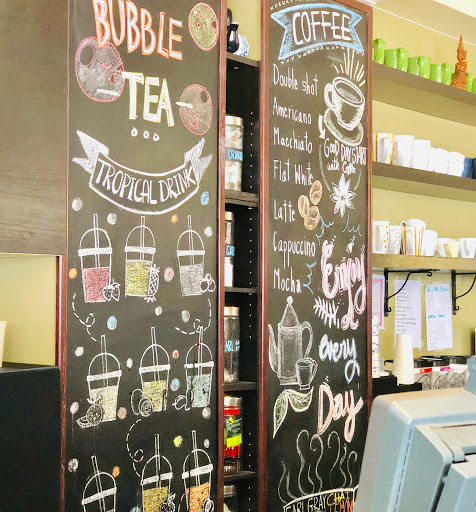 BUBBLE
TEA
TROPICAL DRINK
COFFEE
Double shot
Americano
Macchiato
Flat White
Latte
Cappuccino
Mocha
GOOD DAY START
with Coffee
Enjoy
every
Day
EARL GRAY